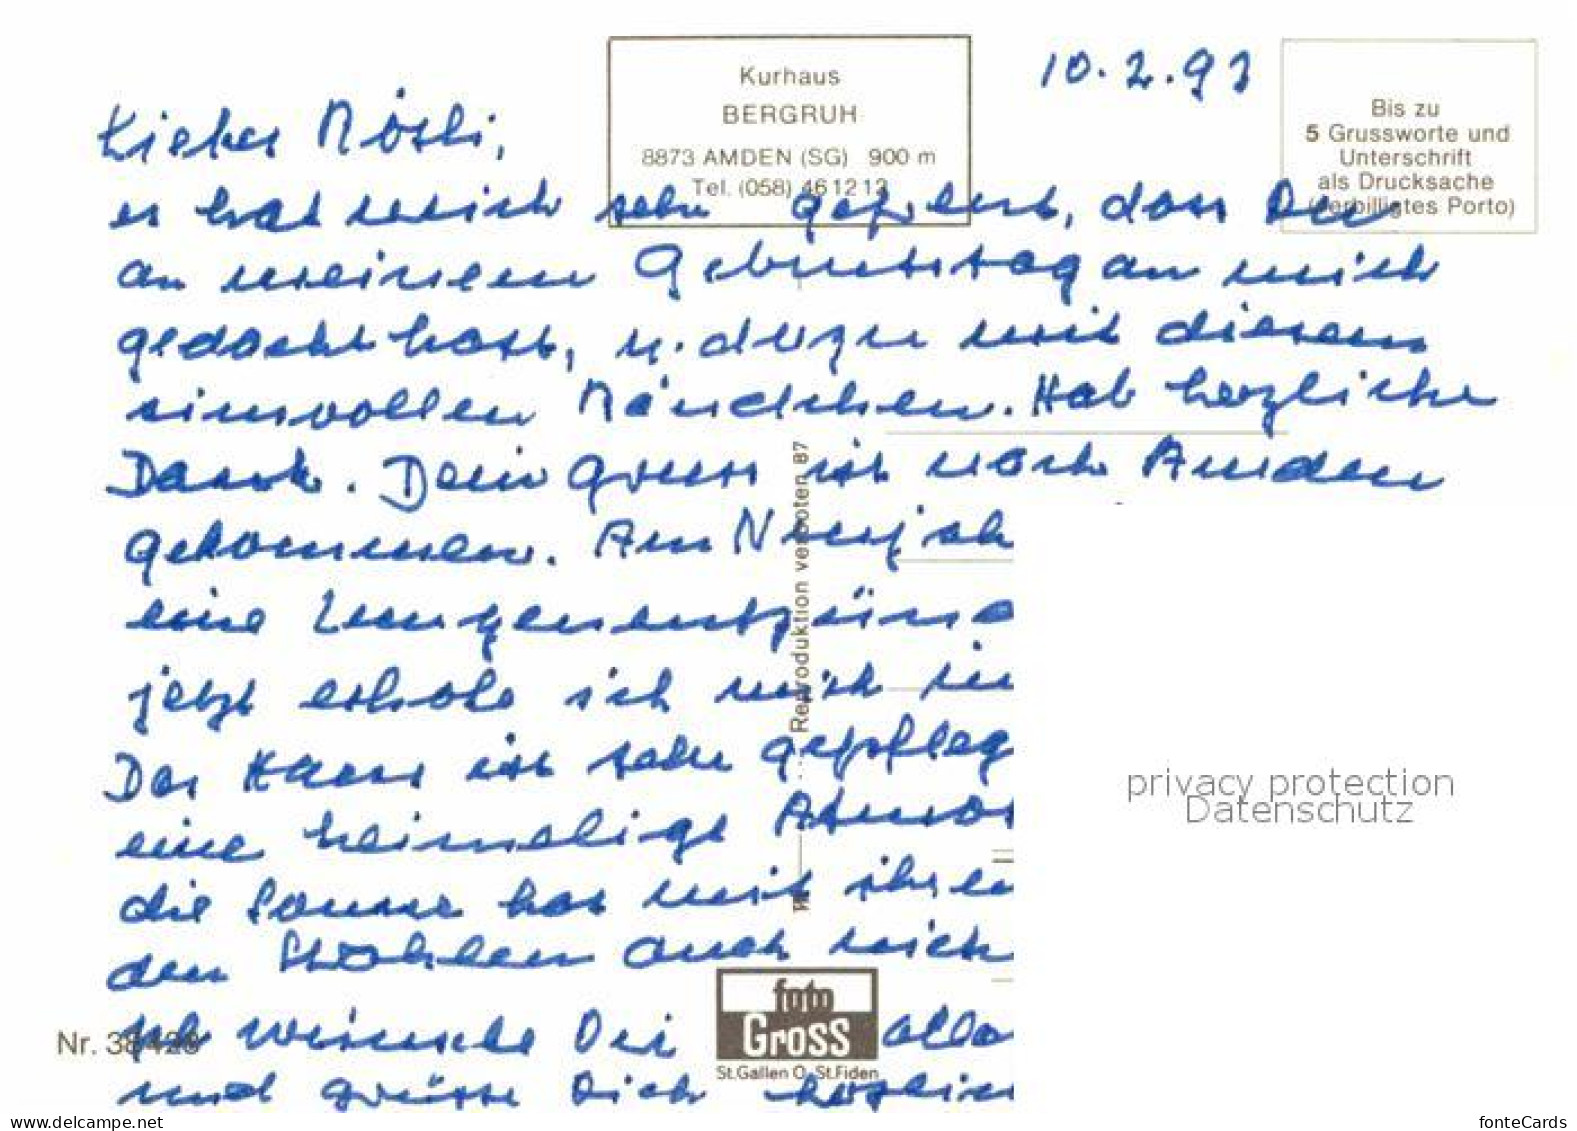 Kurhaus
BERGRUH
8873 AMDEN (SG) 900 m
Tel. (058) 46 12 13
10.2.93
Bis zu
5 Grussworte und
Unterschrift
als Drucksache
(verbilligtes Porto)
Liebes Rösli,
es hat mich sehr gefreut, dass Du
an meinem Geburtstag an mich
gedacht hast, u. dazu mit diesem
sinnvollen Händchen. Hab herzliche
Dank. Dein Gruss ist nach Amden
gekommen. Am Neujah
eine Lungenentzün
jetzt erhole ich mich in
Das Haus ist sehr gepfleg
eine heimelige Atmos
die Sonne hat mit ihren
den Strahlen auch mich
Ich wünsche Dir alle
und grüsse Dich herzlich
Reproduktion verboten 87
Nr. 38428
foto
Gross
St.Gallen O, St.Fiden
privacy protection
Datenschutz
www.delcampe.net
fonteCards